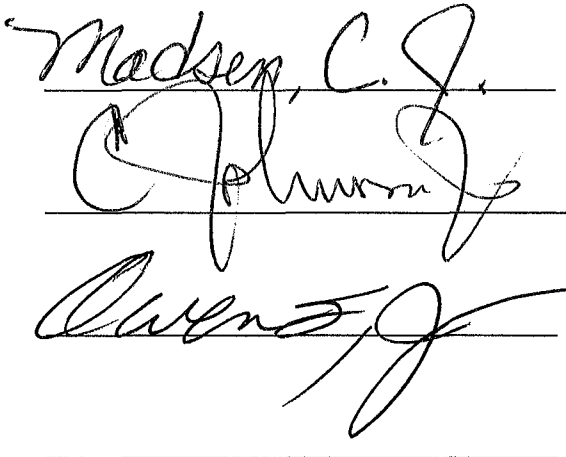 Madsen, C. J.
C Johnson J
Owens, J